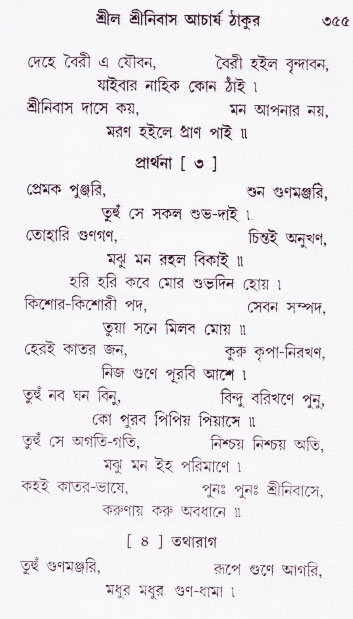 শ্রীল শ্রীনিবাস আচার্য ঠাকুর ৩৫৫
দেহে বৈরী এ যৌবন, বৈরী হইল বৃন্দাবন,
যাইবার নাহিক কোন ঠাঁই ।
শ্রীনিবাস দাসে কয়, মন আপনার নয়,
মরণ হইলে প্রাণ পাই ॥
প্রার্থনা [ ৩ ]
প্রেমক পুঞ্জরি, শুন গুণমঞ্জরি,
তুহুঁ সে সকল শুভ-দাই ।
তোহারি গুণগণ, চিন্তই অনুখণ,
মঝু মন রহল বিকাই ॥
হরি হরি কবে মোর শুভদিন হোয় ।
কিশোর-কিশোরী পদ, সেবন সম্পদ,
তুয়া সনে মিলব মোয় ॥
হেরই কাতর জন, কুরু কৃপা-নিরখণ,
নিজ গুণে পূরবি আশে ।
তুহুঁ নব ঘন বিনু, বিন্দু বরিখণে পুনু,
কো পুরব পিপিয় পিয়াসে ॥
তুহুঁ সে অগতি-গতি, নিশ্চয় নিশ্চয় অতি,
মঝু মন ইহ পরিমাণে ।
কহই কাতর-ভাষে, পুনঃ পুনঃ শ্রীনিবাসে,
করুণায় করু অবধানে ॥
[ ৪ ] তথারাগ
তুহুঁ গুণমঞ্জরি, রূপে গুণে আগরি,
মধুর মধুর গুণ-ধামা ।